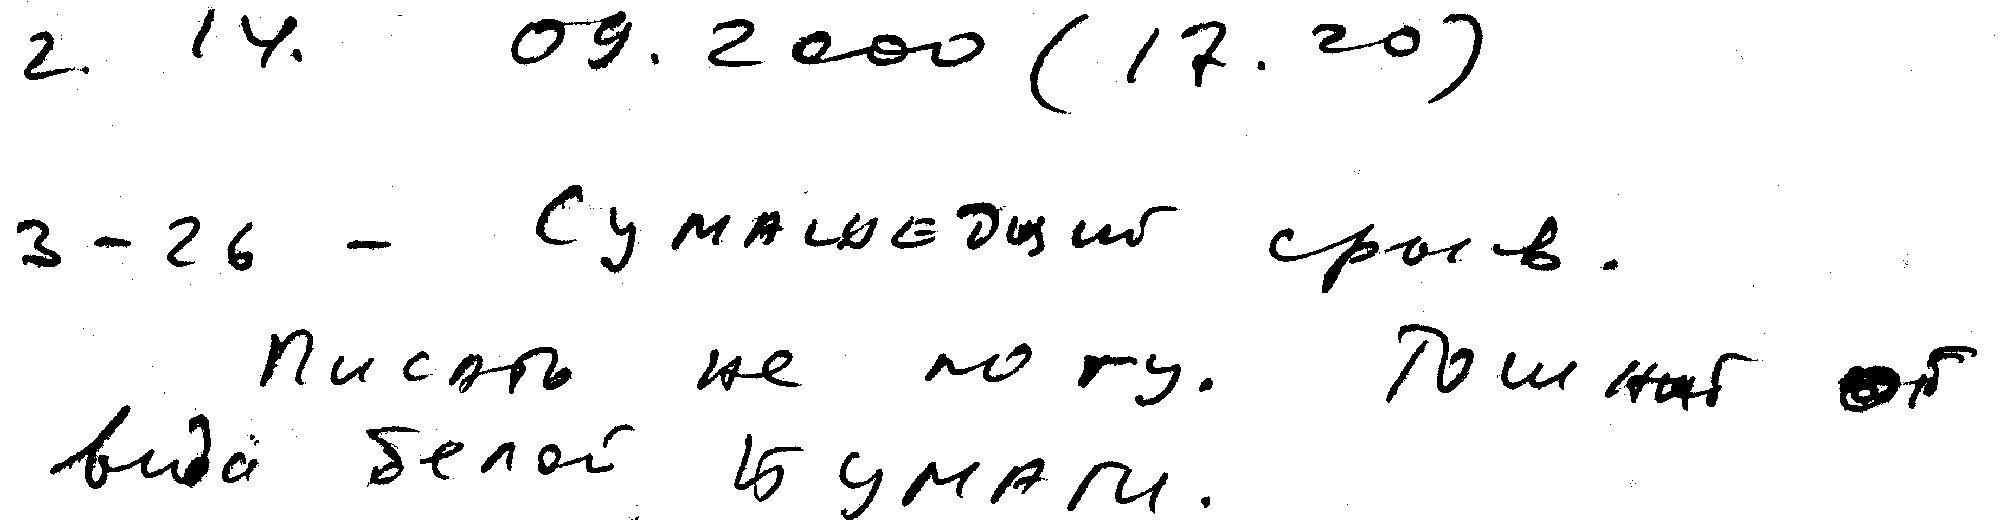 2. 14. 09. 2000 (17.20)
3-26 - Сумашедший срыв.
Писать не могу. Тошнит от
вида белой бумаги.